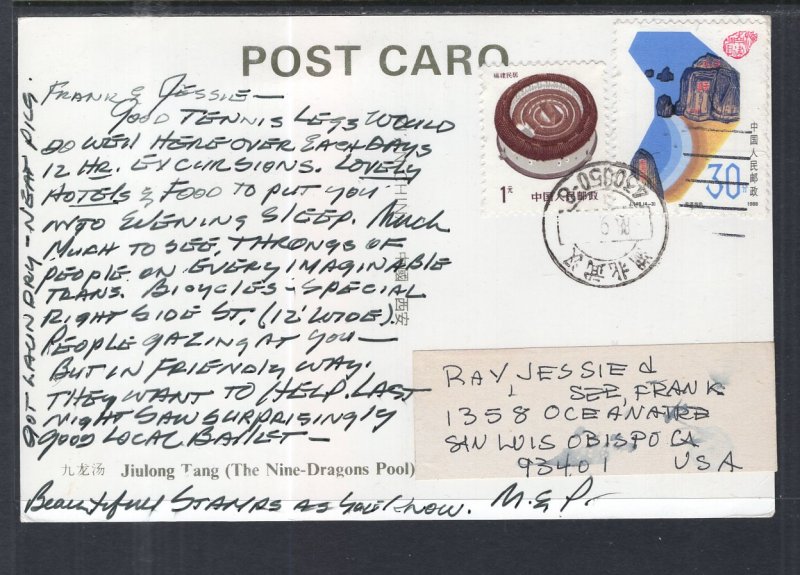 POST CARD
FRANK & JESSIE —
GOOD TENNIS LEGS WOULD
DO WELL HERE OVER EACH DAYS
12 HR. EXCURSIONS. LOVELY
HOTELS & FOOD TO PUT YOU
INTO EVENING SLEEP. MUCH
MUCH TO SEE. THRONGS OF
PEOPLE ON EVERY IMAGINABLE
TRANS. BICYCLES - SPECIAL
RIGHT SIDE ST. (12' WIDE).
PEOPLE GAZING AT YOU —
BUT IN FRIENDLY WAY.
THEY WANT TO HELP. LAST
NIGHT SAW SURPRISINGLY
GOOD LOCAL BALLET —
GOT LAUNDRY - NEAT PKG.
九龙汤 Jiulong Tang (The Nine-Dragons Pool)
Beautiful STAMPS AS YOU KNOW. M. & P. —
中國 西安
福建民居
1元
中国人民邮政
中国人民邮政
30分
1988
430050
湖北武汉
RAY JESSIE &
SEE, FRANK
1358 OCEANAIRE
SAN LUIS OBISPO CA
93401 USA